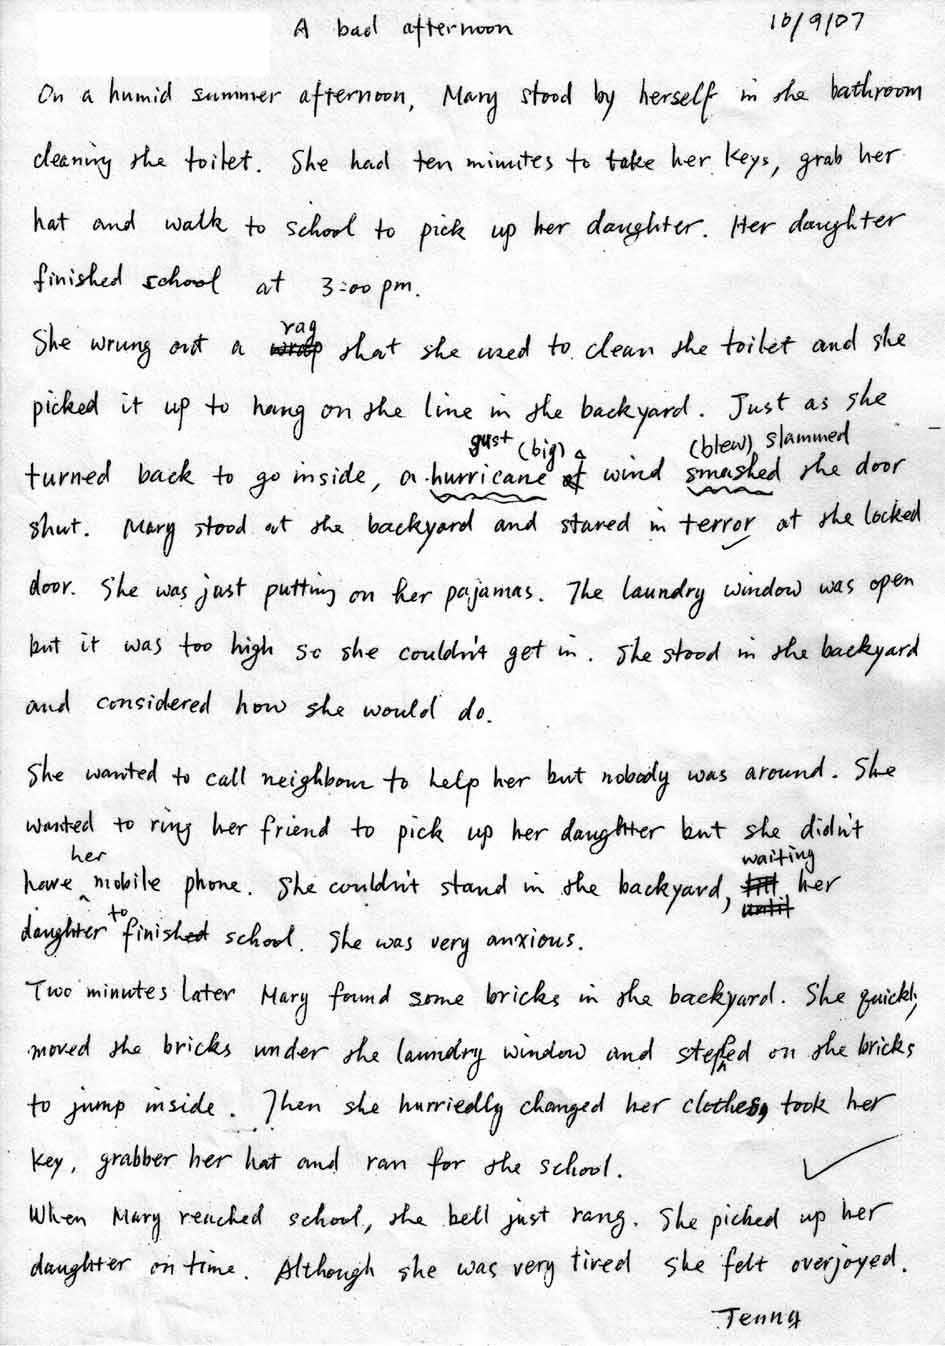 A bad afternoon
10/9/07
On a humid summer afternoon, Mary stood by herself in the bathroom
cleaning the toilet. She had ten minutes to take her keys, grab her
hat and walk to school to pick up her daughter. Her daughter
finished school at 3:00 pm.
rag
She wrung out a wrap that she used to clean the toilet and she
picked it up to hang on the line in the backyard. Just as she
gust (big) (blew) slammed
turned back to go inside, a hurricane of wind smashed the door
shut. Mary stood at the backyard and stared in terror at the locked
door. She was just putting on her pajamas. The laundry window was open
but it was too high so she couldn't get in. She stood in the backyard
and considered how she would do.
She wanted to call neighbour to help her but nobody was around. She
wanted to ring her friend to pick up her daughter but she didn't
her waiting
have mobile phone. She couldn't stand in the backyard, till her
until
to
daughter finished school. She was very anxious.
Two minutes later Mary found some bricks in the backyard. She quickly
moved the bricks under the laundry window and stepped on the bricks
to jump inside. Then she hurriedly changed her clothes, took her
key, grabber her hat and ran for the school.
When Mary reached school, the bell just rang. She picked up her
daughter on time. Although she was very tired she felt overjoyed.
Jenny